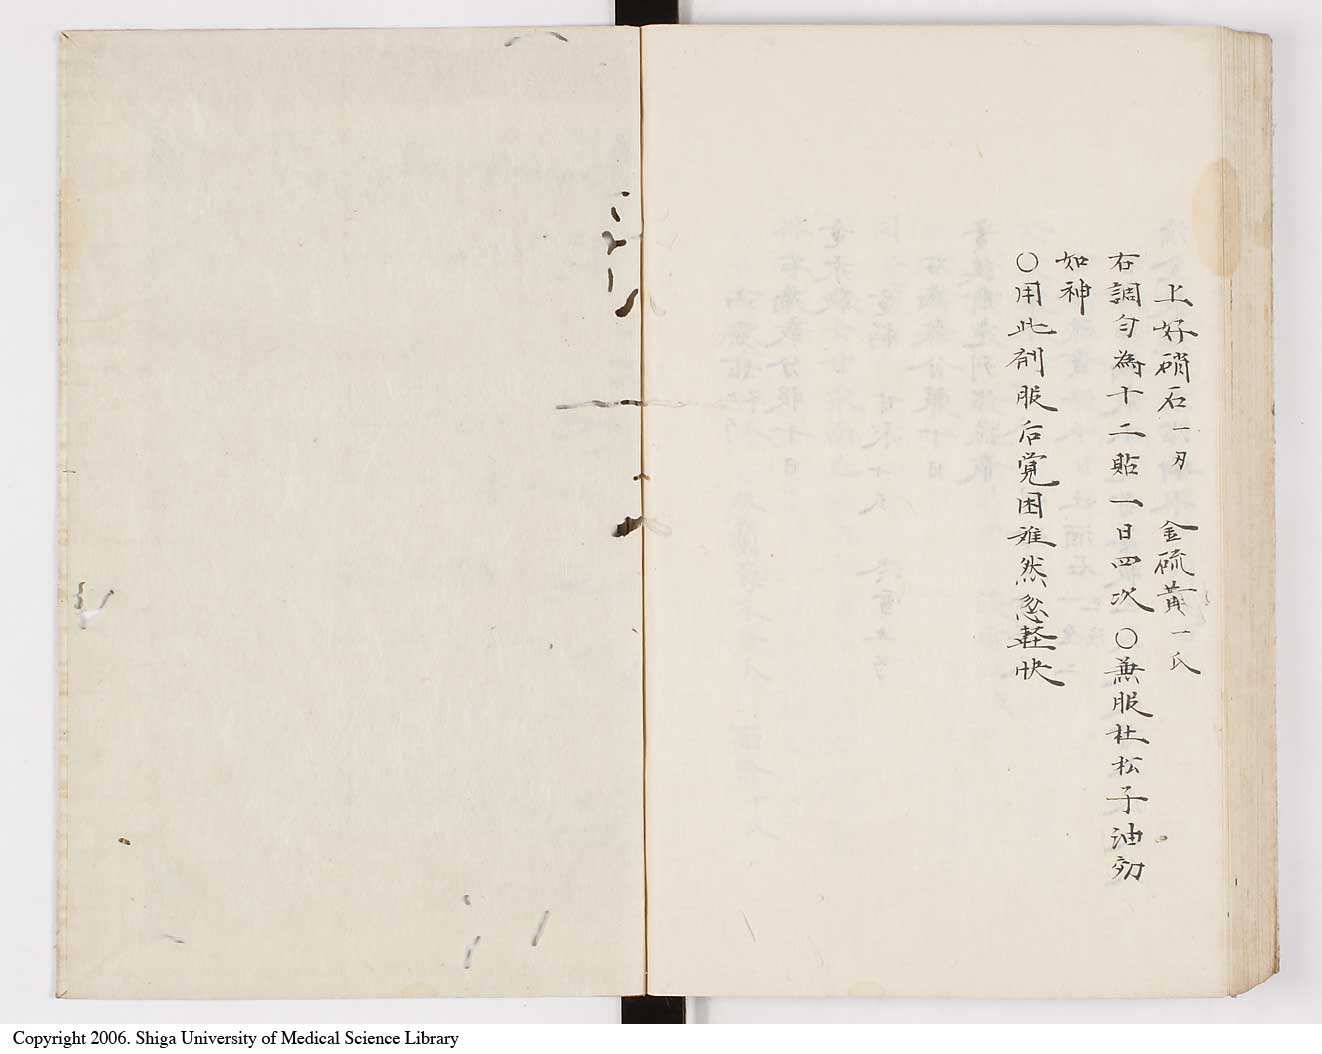 上好硝石一刃 金硫黄一氏
右調匀為十二貼一日四次〇兼服杜松子油効
如神
〇用此剤服后覚困难然忽軽快
Copyright 2006. Shiga University of Medical Science Library